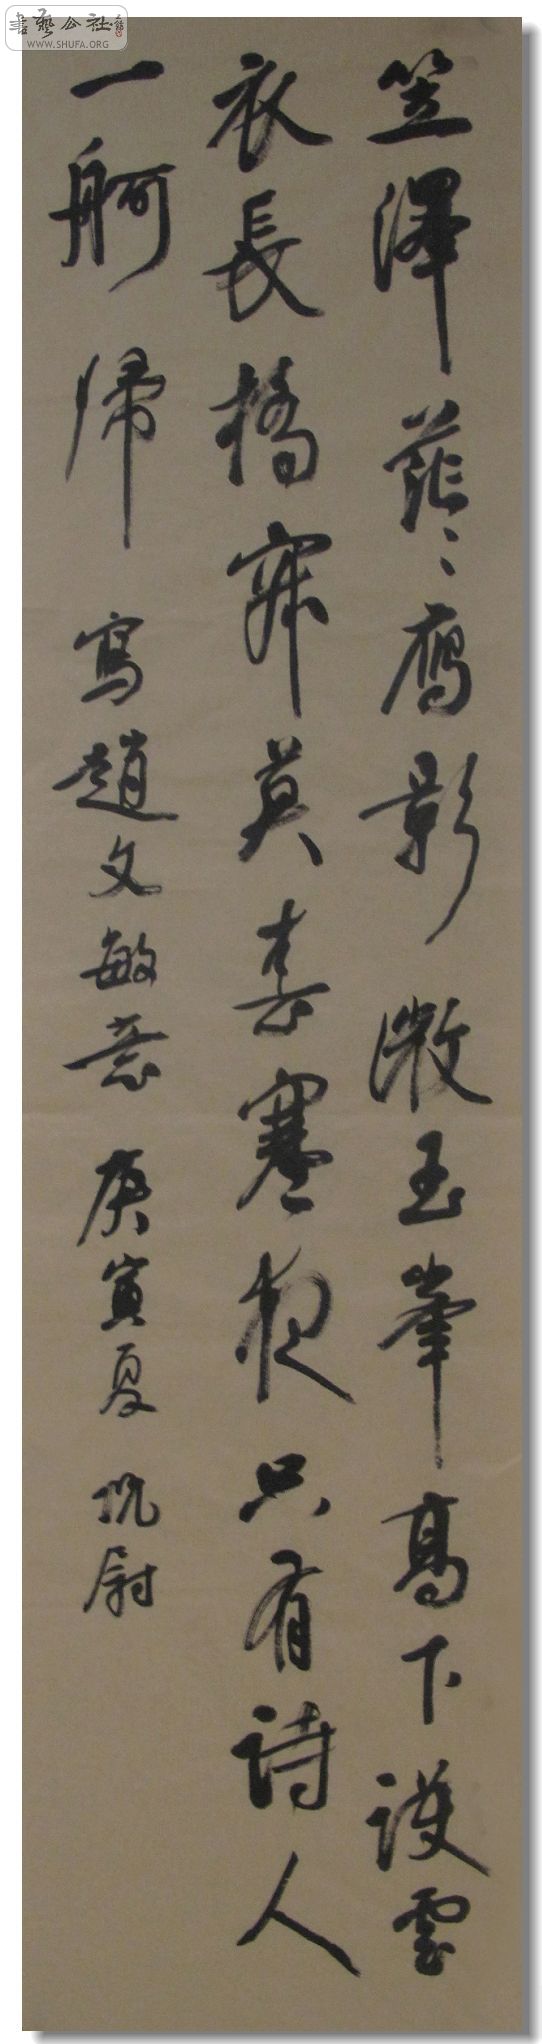 書藝公社
WWW.SHUFA.ORG
笠澤茫〻鴈影微玉峯高下護雲
衣長橋寂莫春寒夜只有詩人
一舸歸 寫趙文敏意 庚寅夏 尉